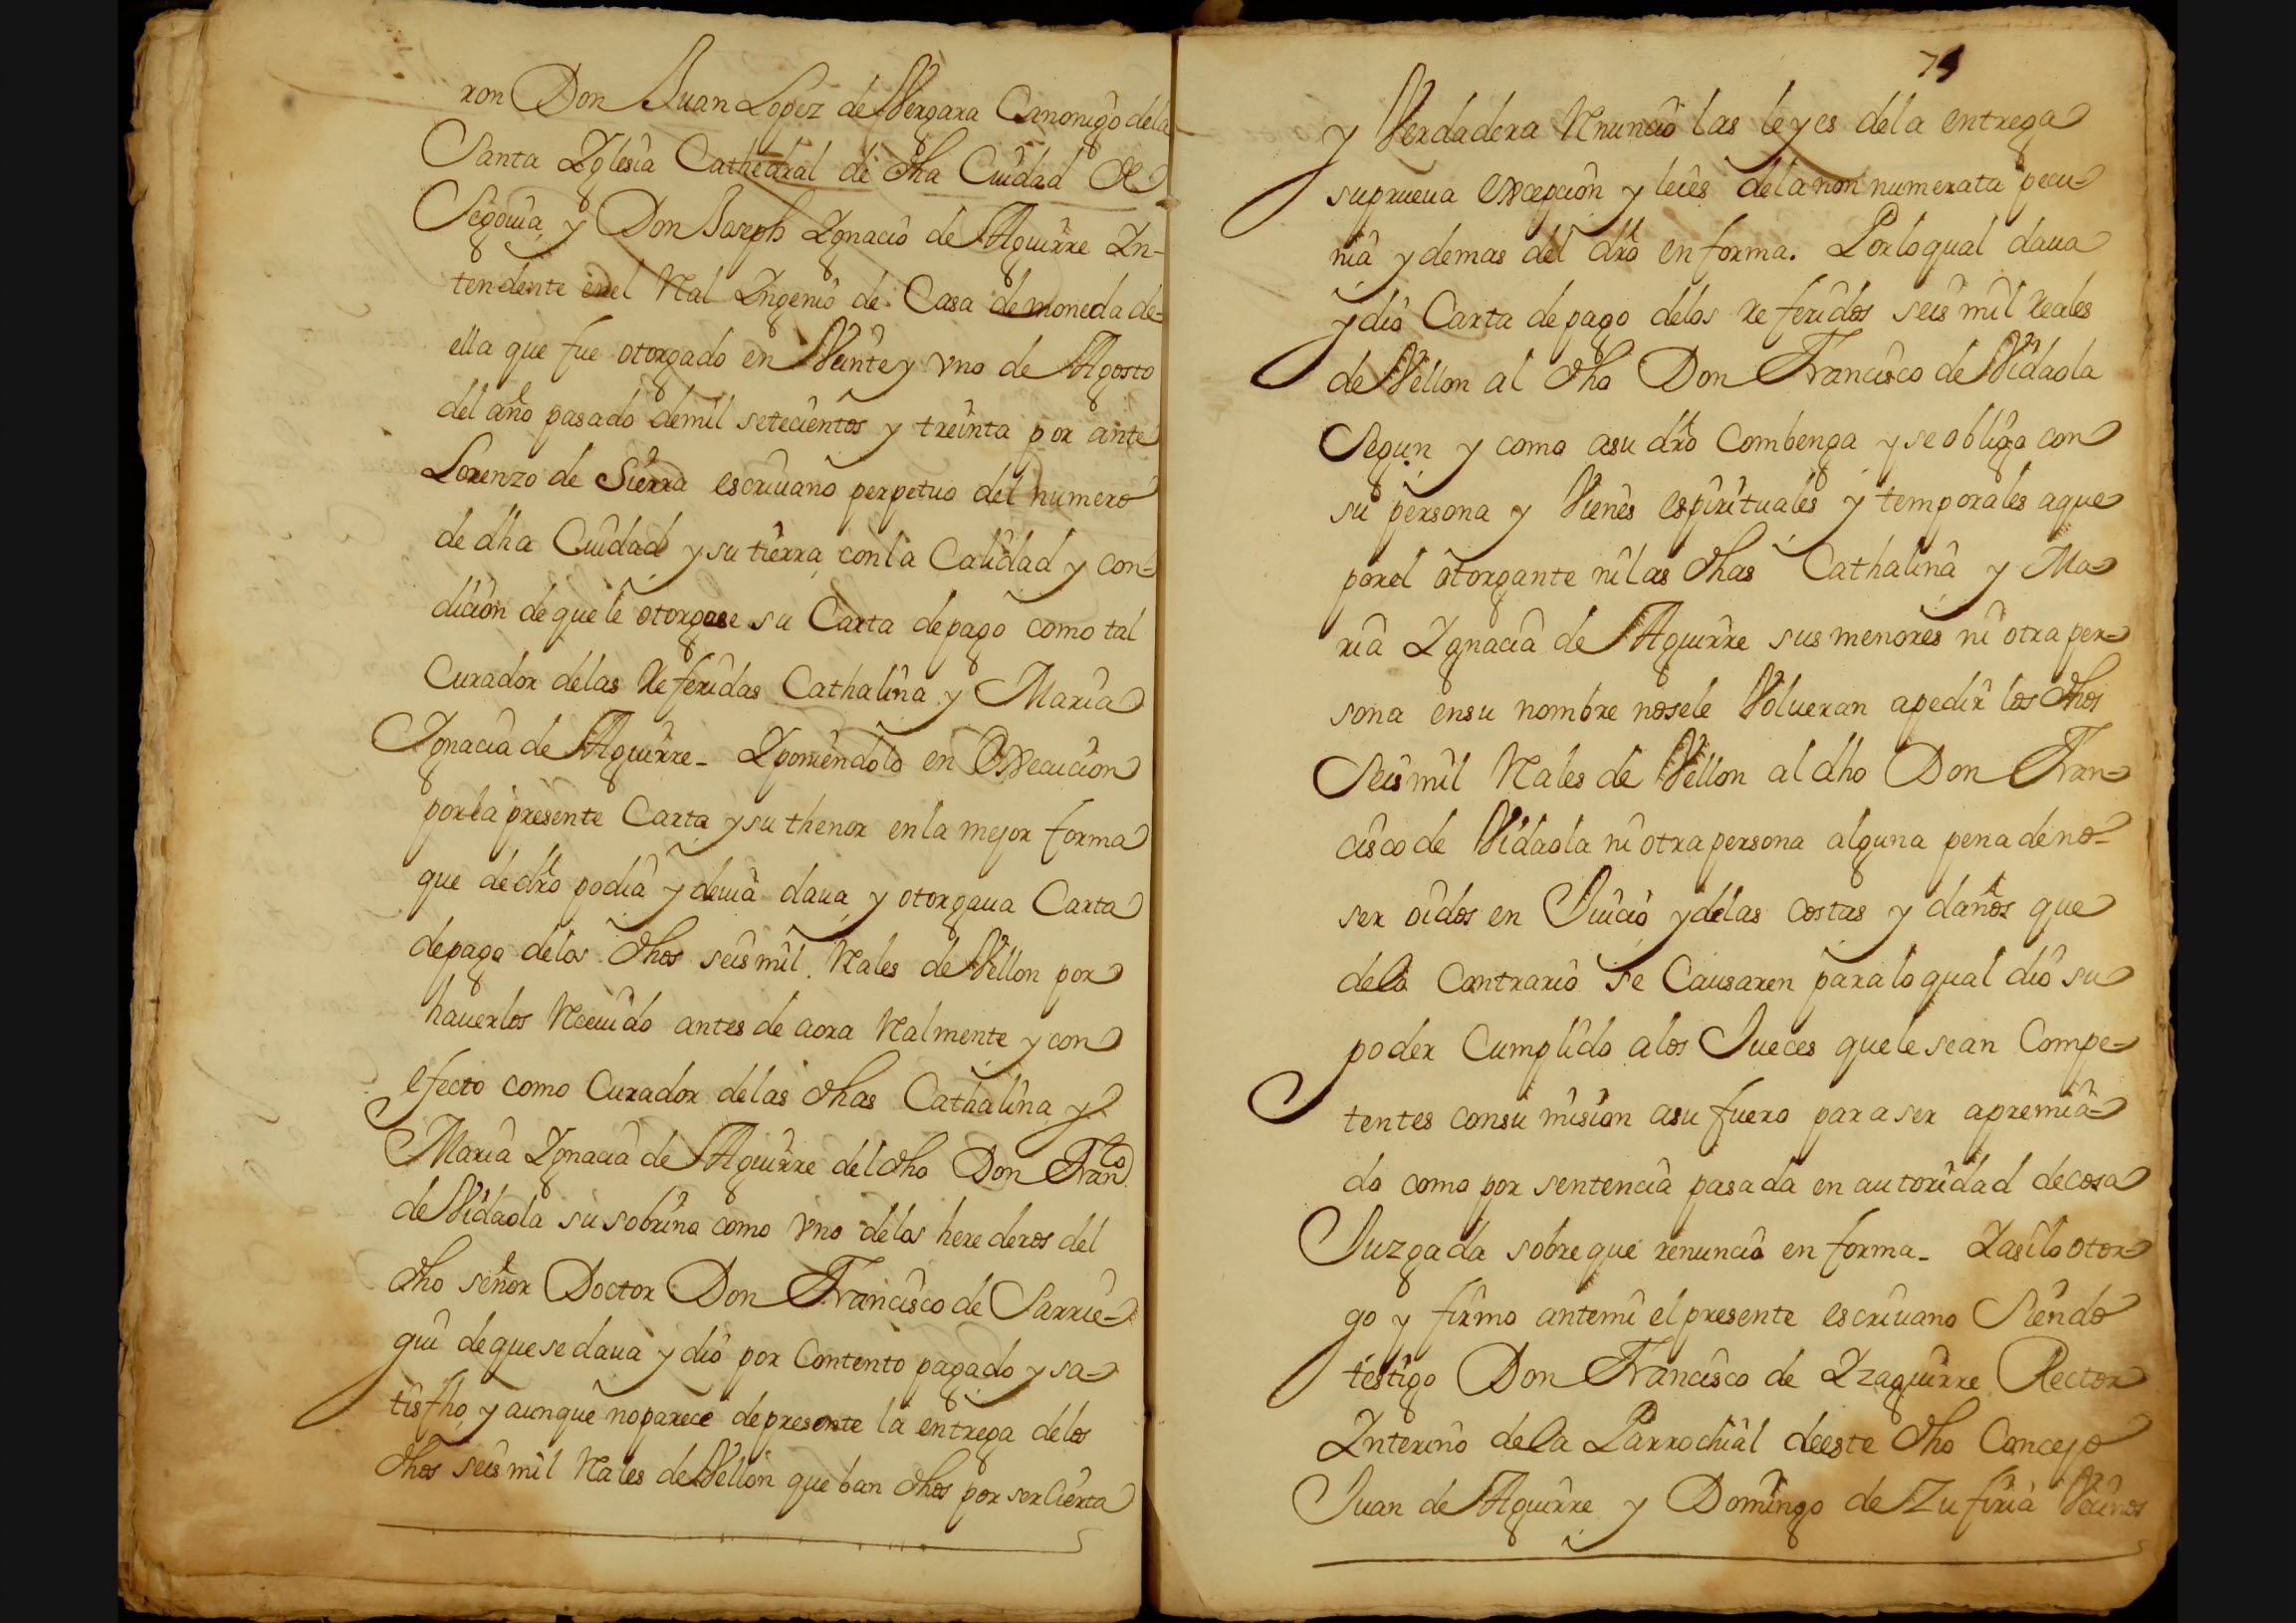 ron Don Juan Lopez de Vergara Canonigo dela
Santa Yglesia Cathedral de dha Ciudad de
Segovia, y Don Joseph Ygnacio de Aguirre Yn-
tendente enel Rial Yngenio de Casa demoneda de-
ella que fue otorgado en Veinte y vno de Agosto
del año pasado demil setecientos y treinta por ante
Lorenzo de Sierra escriuano perpetuo del numero
de dha Ciudad y su tierra, conla Calidad y con-
dicion de que le otorgase su Carta depago como tal
Curador delas Referidas Cathalina y Maria
Ygnacia de Aguirre_ Yponiendolo en Execucion
porla presente Carta y su thenor enla mejor forma
que de dro podia y deuia daua, y otorgaua Carta
depago delos dhos seismil Rales de Vellon por
hauerlos Reciuido antes de aora Ralmente y con
efecto como Curador delas dhas Cathalina y
Maria Ygnacia de Aguirre del dho Don Franco
de Vidaola su sobrino como vno delos herederos del
dho señor Doctor Don Francisco de Sarrie-
gui de que se daua y dio por Contento pagado y sa-
tisfho, y aunque noparece depresente la entrega delos
dhos seis mil Rales de Vellon que ban dhos por ser Cierta
79
y Verdadera Rnuncio las leyes dela entrega
suprueua excepcion y leies dela non numerata pecu-
nia y demas del dro en forma. Porloqual daua
y dio Carta depago delos Referidos seis mil Reales
de Vellon al dho Don Francisco de Vidaola
Segun y como asu dro Combenga y se obligo con
su persona y Vienes espirituales y temporales aque
porel otorgante nilas dhas Cathalina y Ma-
ria Ygnacia de Aguirre sus menores ni otra per-
sona ensu nombre nosele Volueran apedir los dhos
Seis mil Rales de Vellon al dho Don Fran-
cisco de Vidaola ni otra persona alguna pena deno-
ser oidos en Juicio y delas costas y daños que
delo Contrario se Causaren paralo qual dio su
poder Cumplido alos Jueces quele sean Compe-
tentes consumision asu fuero para ser apremia-
do como por sentencia pasada en autoridad decosa
Juzgada sobre que renuncio en forma_ Yasilo otor-
go y firmo antemi el presente escriuano Siendo
testigo Don Francisco de Yzaguirre Rector
Ynterino dela Parrochial deeste dho Concejo
Juan de Aguirre y Domingo de Zufiria Vecinos